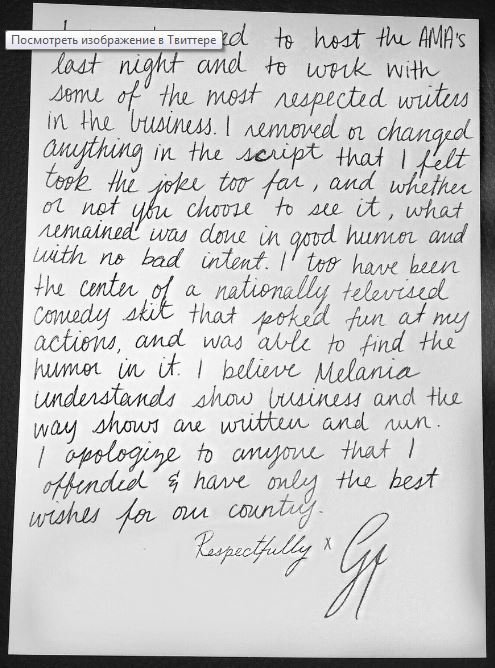 Посмотреть изображение в Твиттере
to host the AMA's
last night and to work with
some of the most respected writers
in the business. I removed or changed
anything in the script that I felt
took the joke too far, and whether
or not you choose to see it, what
remained was done in good humor and
with no bad intent. I too have been
the center of a nationally televised
comedy skit that poked fun at my
actions, and was able to find the
humor in it. I believe Melania
understands show business and the
way shows are written and run.
I apologize to anyone that I
offended & have only the best
wishes for our country.
Respectfully x